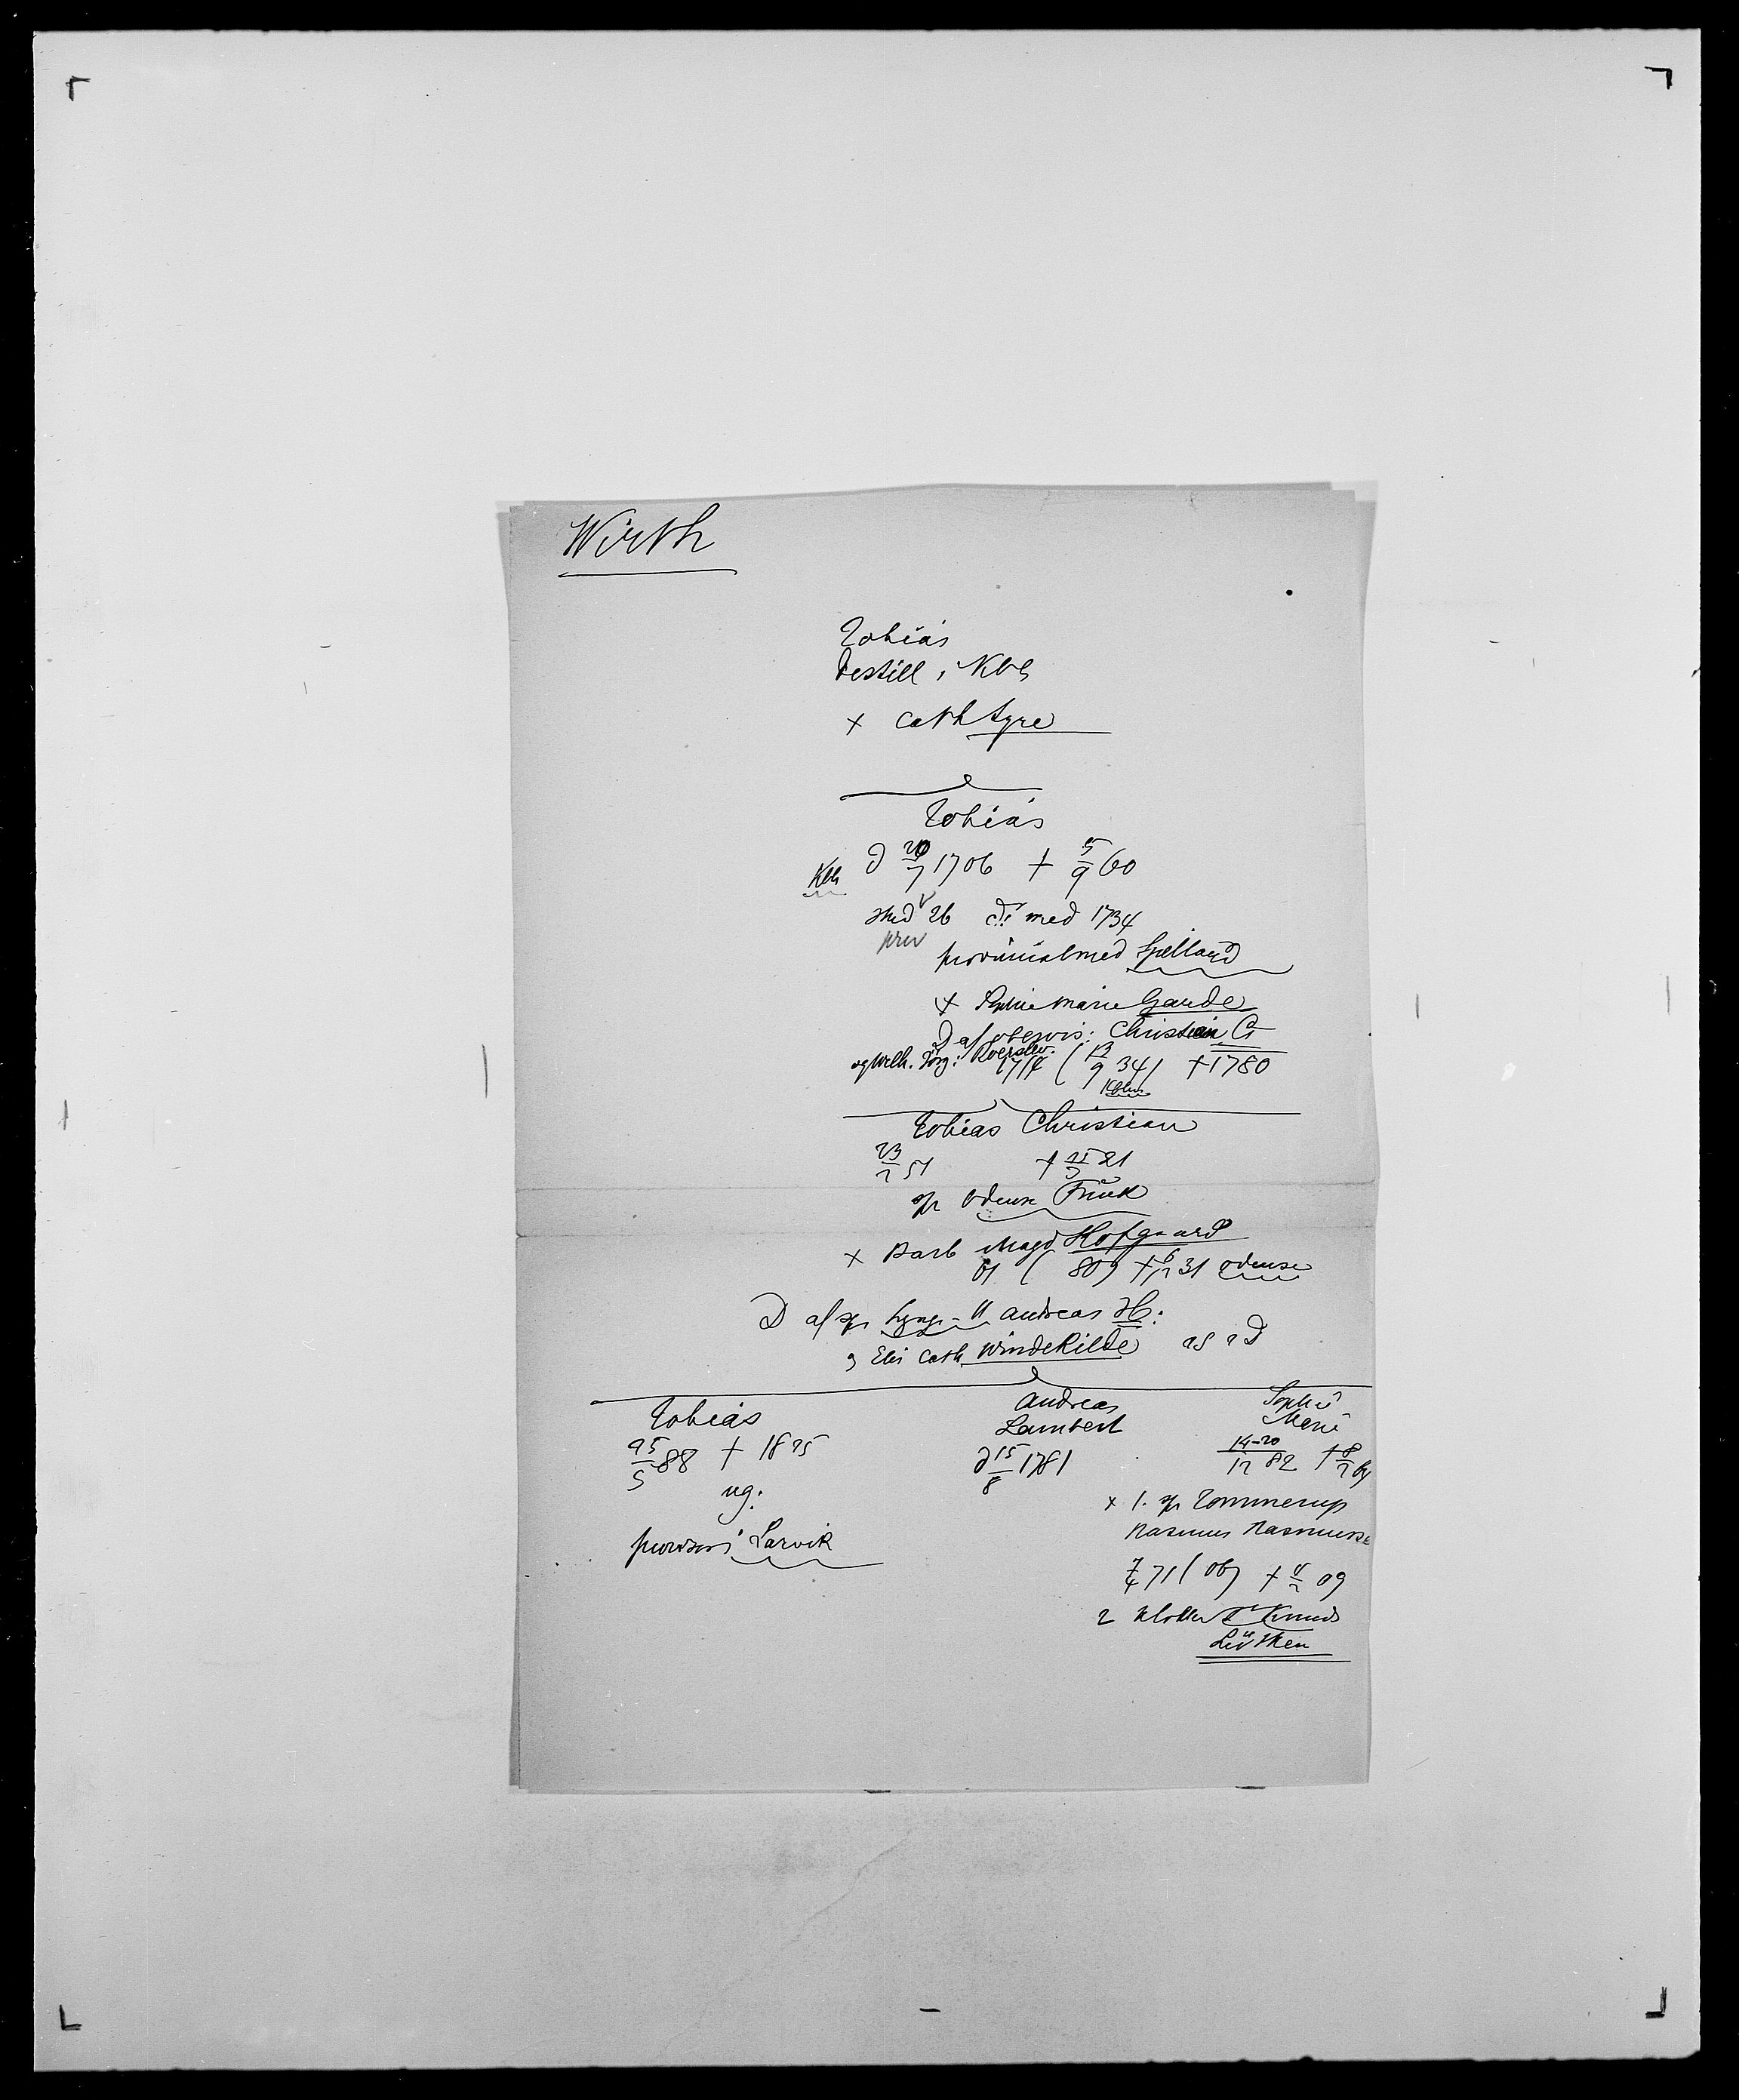 Wirth
Tobias
Destill i Kbh
x Cath Lyre
Tobias
Kbh
d 20/7 1706 + 5/9 60
stud 26 dr med 1734
priv
provincialmed Sjælland
x Sophie Marie Gaude
D af obervis: Christian G
og Wilh. Dorg: Roerslev.
1714 ( 13/9 34) + 1780
Kbh
Tobias Christian
23/2 51 + 21
sp Odense Frue
x Barb Magd Hofgaard
61 ( 80) + 6/12 31 Odense
D af sp Lyngs- Andreas H:
og Elis Cath Windekilde
Tobias
25/5 88 + 1825
ug:
provisor i Larvik
Andreas
Lambert
d 15/8 1781
Sophie
Marie
14-20/12 82 + 8/2
x 1. sp Tommerup
Rasmus Rasmusse
7/4 71 ( 06) + 09
2 Knuds
Lütken